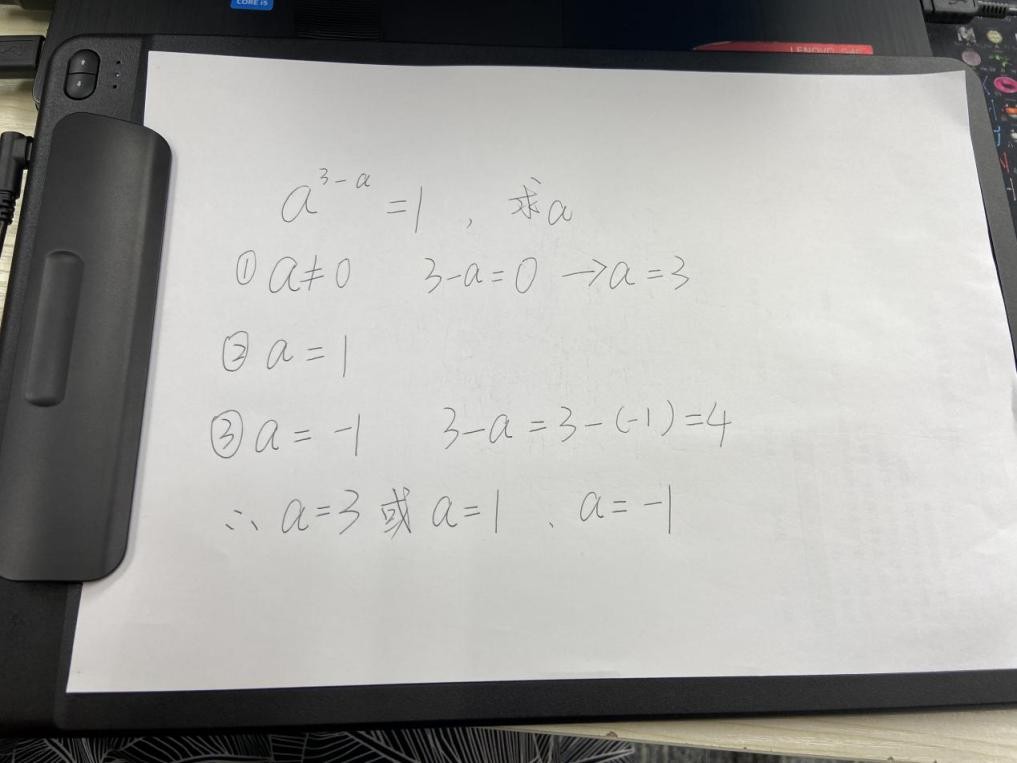 CORE i5
LENOVO
a^{3-a} = 1 , 求a
① a≠0 3-a=0 →a=3
② a=1
③ a=-1 3-a=3-(-1)=4
∴ a=3 或 a=1 、 a=-1